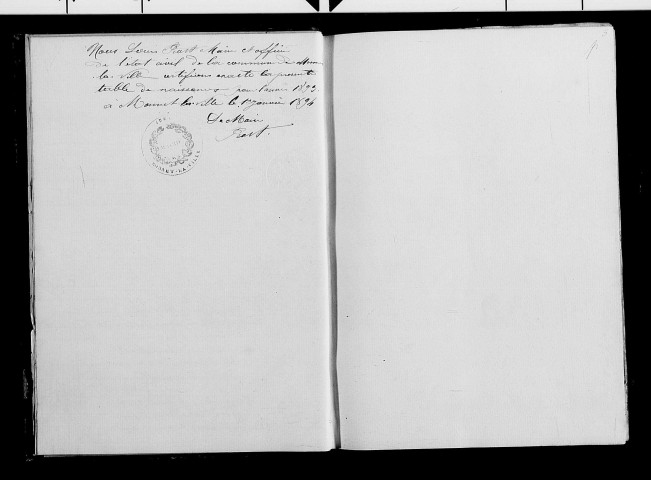 Nous Louis Prost Maire et officier
de l'état civil de la commune de Monnet
la ville certifions exacte la présente
table de naissances pour l'année 1893
à Monnet la ville le 1er janvier 1894
Le Maire
Prost
MONNET-LA-VILLE